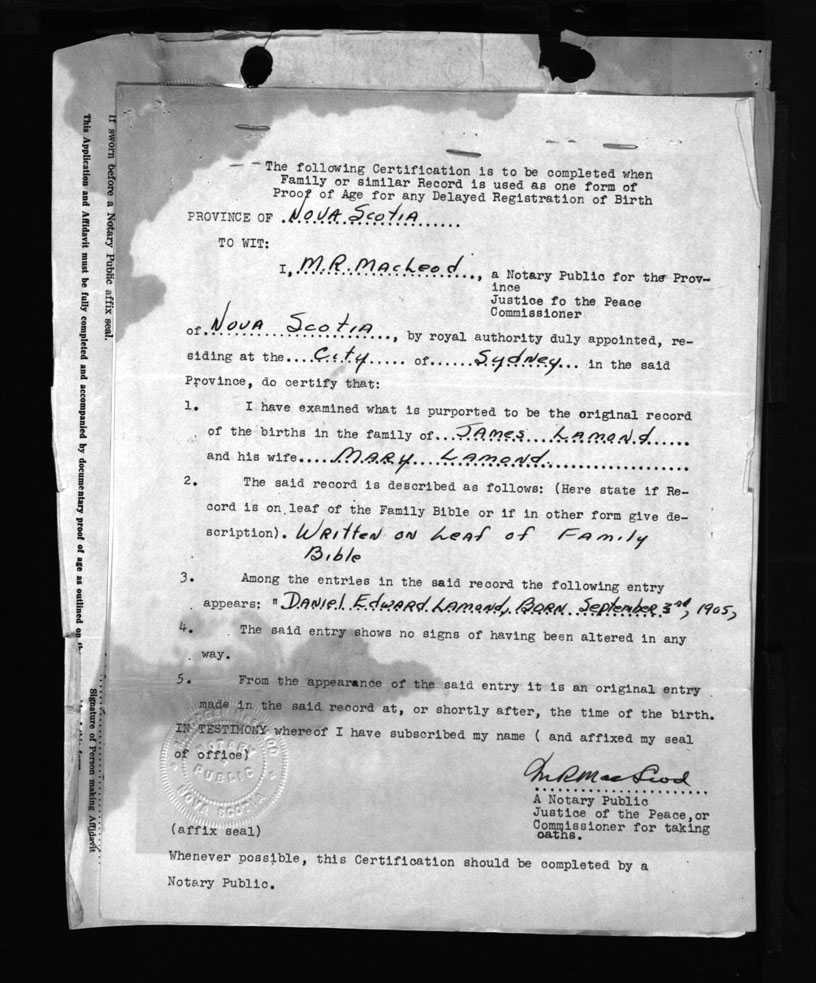 The following Certification is to be completed when
Family or similar Record is used as one form of
Proof of Age for any Delayed Registration of Birth
PROVINCE OF .NOVA SCOTIA......
TO WIT:
I, M.R. MacLeod..., a Notary Public for the Prov-
ince
Justice fo the Peace
Commissioner
of. NOVA SCOTIA..., by royal authority duly appointed, re-
siding at the....City..... of......Sydney... in the said
Province, do certify that:
1. I have examined what is purported to be the original record
of the births in the family of...JAMES...LAMOND......
and his wife.....MARY...LAMOND....................
2. The said record is described as follows: (Here state if Re-
cord is on leaf of the Family Bible or if in other form give de-
scription). WRitten on Leaf of Family
Bible
3. Among the entries in the said record the following entry
appears: "DANiel EdwARd LAmond, BoRN September 3rd, 1905,
4. The said entry shows no signs of having been altered in any
way.
5. From the appearance of the said entry it is an original entry
made in the said record at, or shortly after, the time of the birth.
IN TESTIMONY whereof I have subscribed my name ( and affixed my seal
of office)
M R MacLeod
A Notary Public
Justice of the Peace, or
Commissioner for taking
oaths.
(affix seal)
Whenever possible, this Certification should be completed by a
Notary Public.
NOTARY
PUBLIC
NOVA SCOTIA
If sworn before a Notary Public affix seal.
This Application and Affidavit must be fully completed and accompanied by documentary proof of age as outlined on
Signature of Person making Affidavit